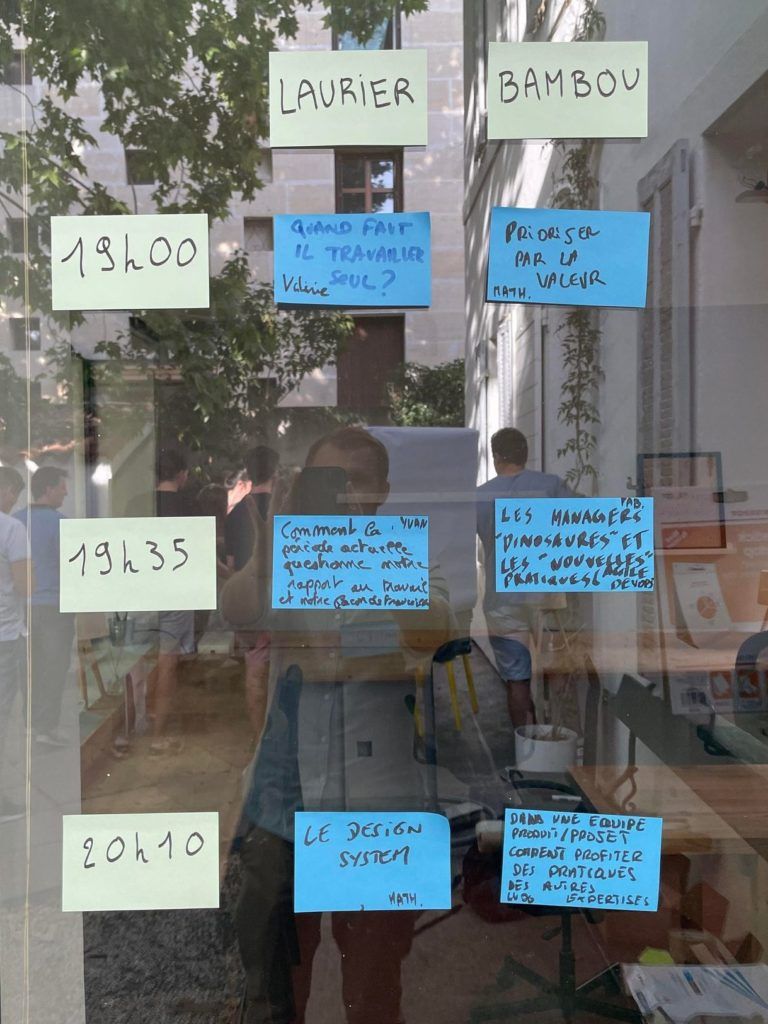 LAURIER
BAMBOU
19h00
QUAND FAUT
IL TRAVAILLER
SEUL?
Valérie
PRIORISER
PAR LA
VALEUR
MATH.
19h35
Comment la YVAN
période actuelle
questionne notre
rapport au travail
et notre façon de
FAB.
LES MANAGERS
"DINOSAURES" ET
LES "NOUVELLES"
PRATIQUES (AGILE
DEVOPS
20h10
LE DESIGN
SYSTEM
MATH.
DANS UNE EQUIPE
PRODUIT/PROJET
COMMENT PROFITER
DES PRATIQUES
DES AUTRES
LUDO EXPERTISES